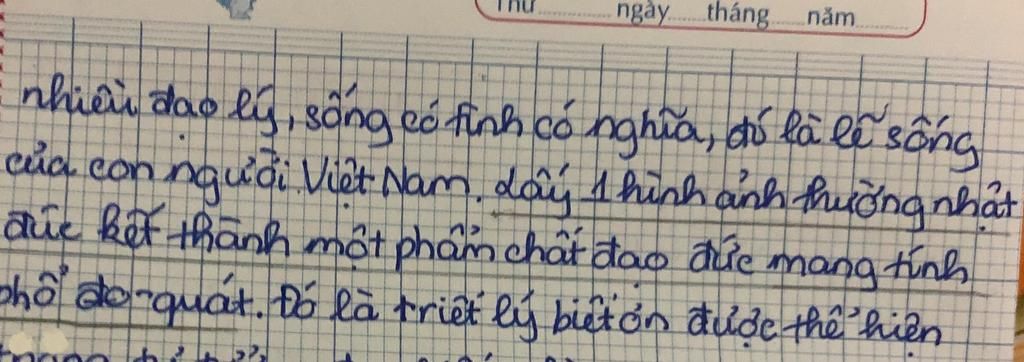 Thứ ngày tháng năm
nhiều đạo lý, sống có tình có nghĩa, đó là lẽ sống
của con người Việt Nam. Lấy 1 hình ảnh thường nhật
đúc kết thành một phẩm chất đạo đức mang tính
phổ quát. Đó là triết lý biết ơn được thể hiện